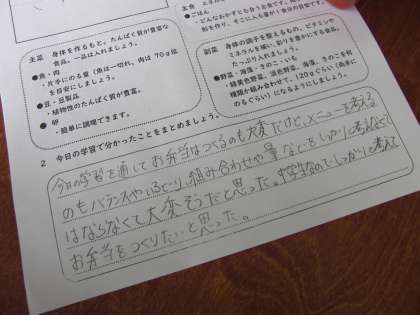 主食
●ごはん
・どんなおかずとも合うお米です。
形を作り、そこに入る量が1食分の目安です。
主菜 身体を作るもと。たんぱく質が豊富な
食品。一品は入れましょう。
●魚・肉
・片手にのる量(魚は一切れ、肉は70g位
を目安にしましょう。
●豆・豆製品
・植物性のたんぱく質が豊富。
●卵
・簡単に調理できます。
副菜 身体の調子を整えるもの。ビタミンや
ミネラルを補い、彩りを豊かにする食品。
たっぷり入れましょう。
●野菜・海藻・きのこ・いも
・緑黄色野菜、淡色野菜、海藻、きのこを何
種類か組み合わせて、120gぐらい(両手に
のるぐらい)になるようにしましょう。
2 今日の学習で分かったことをまとめましょう。
今日の学習を通してお弁当はつくるのも大変だけど、メニューを考える
のもバランスやいろどり、組み合わせや量などをしっかりと考えなくて
はならなくて大変そうだと思った。中学生なので、しっかりと考えて
お弁当をつくりたいと思った。